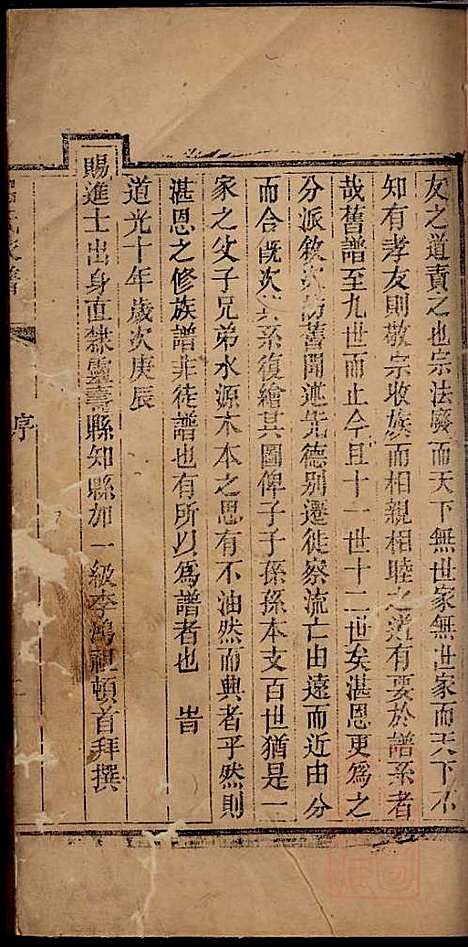 友之道責之也宗法廢而天下無世家無世家而天下不
知有孝友則敬宗收族而相親相睦之道有要於譜系者
哉舊譜至九世而止今且十一世十二世矣湛恩更為之
分派敘次訪舊聞述先德別遷徙察流亡由遠而近由分
而合既次其系復繪其圖俾子子孫孫本支百世猶是一
家之父子兄弟水源木本之思有不油然而興者乎然則
湛恩之修族譜非徒譜也有所以為譜者也 旹
道光十年歲次庚辰
賜進士出身直隸靈壽縣知縣加一級李鴻祖頓首拜撰
氏家譜
序